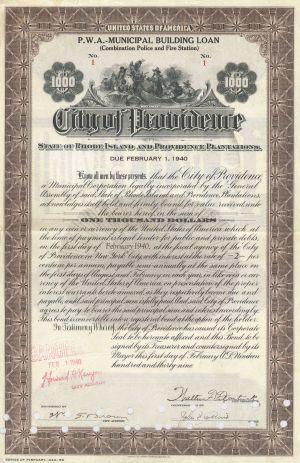 UNITED STATES OF AMERICA
P.W.A.-MUNICIPAL BUILDING LOAN
(Combination Police and Fire Station)
No. 1
No. 1
1000
1000
City of Providence
STATE OF RHODE ISLAND AND PROVIDENCE PLANTATIONS,
DUE FEBRUARY 1, 1940
Know all men by these presents, that the City of Providence,
a Municipal Corporation legally incorporated by the General
Assembly of said State of Rhode Island and Providence Plantations,
acknowledges itself and firmly bound for value received unto
the bearer hereof, in the sum of
ONE THOUSAND DOLLARS
in any coin or currency of the United States of America which at
the time of payment is legal tender for public and private debts,
on the first day of February, 1940, at the fiscal agency of the City
of Providence in New York City, with interest at the rate of -2- per
centum per annum, payable semi-annually at the same place on
the first days of August and February in each year, in like coin or
currency of the United States of America, on presentation of the proper
interest warrants hereto annexed, as they respectively become due and
payable, until said principal sum is fully paid. And said City of Providence
agrees to pay to bearer the said principal sum and interest accordingly.
This bond is convertible into a registered bond at the option of the holder.
In Testimony Whereof, the City of Providence has caused its Corporate
Seal to be hereunto affixed and this Bond to be
signed by its Treasurer and countersigned by its
Mayor this first day of February A.D. Nineteen
hundred and thirty nine
FEB 1 1940
CITY AUDITOR